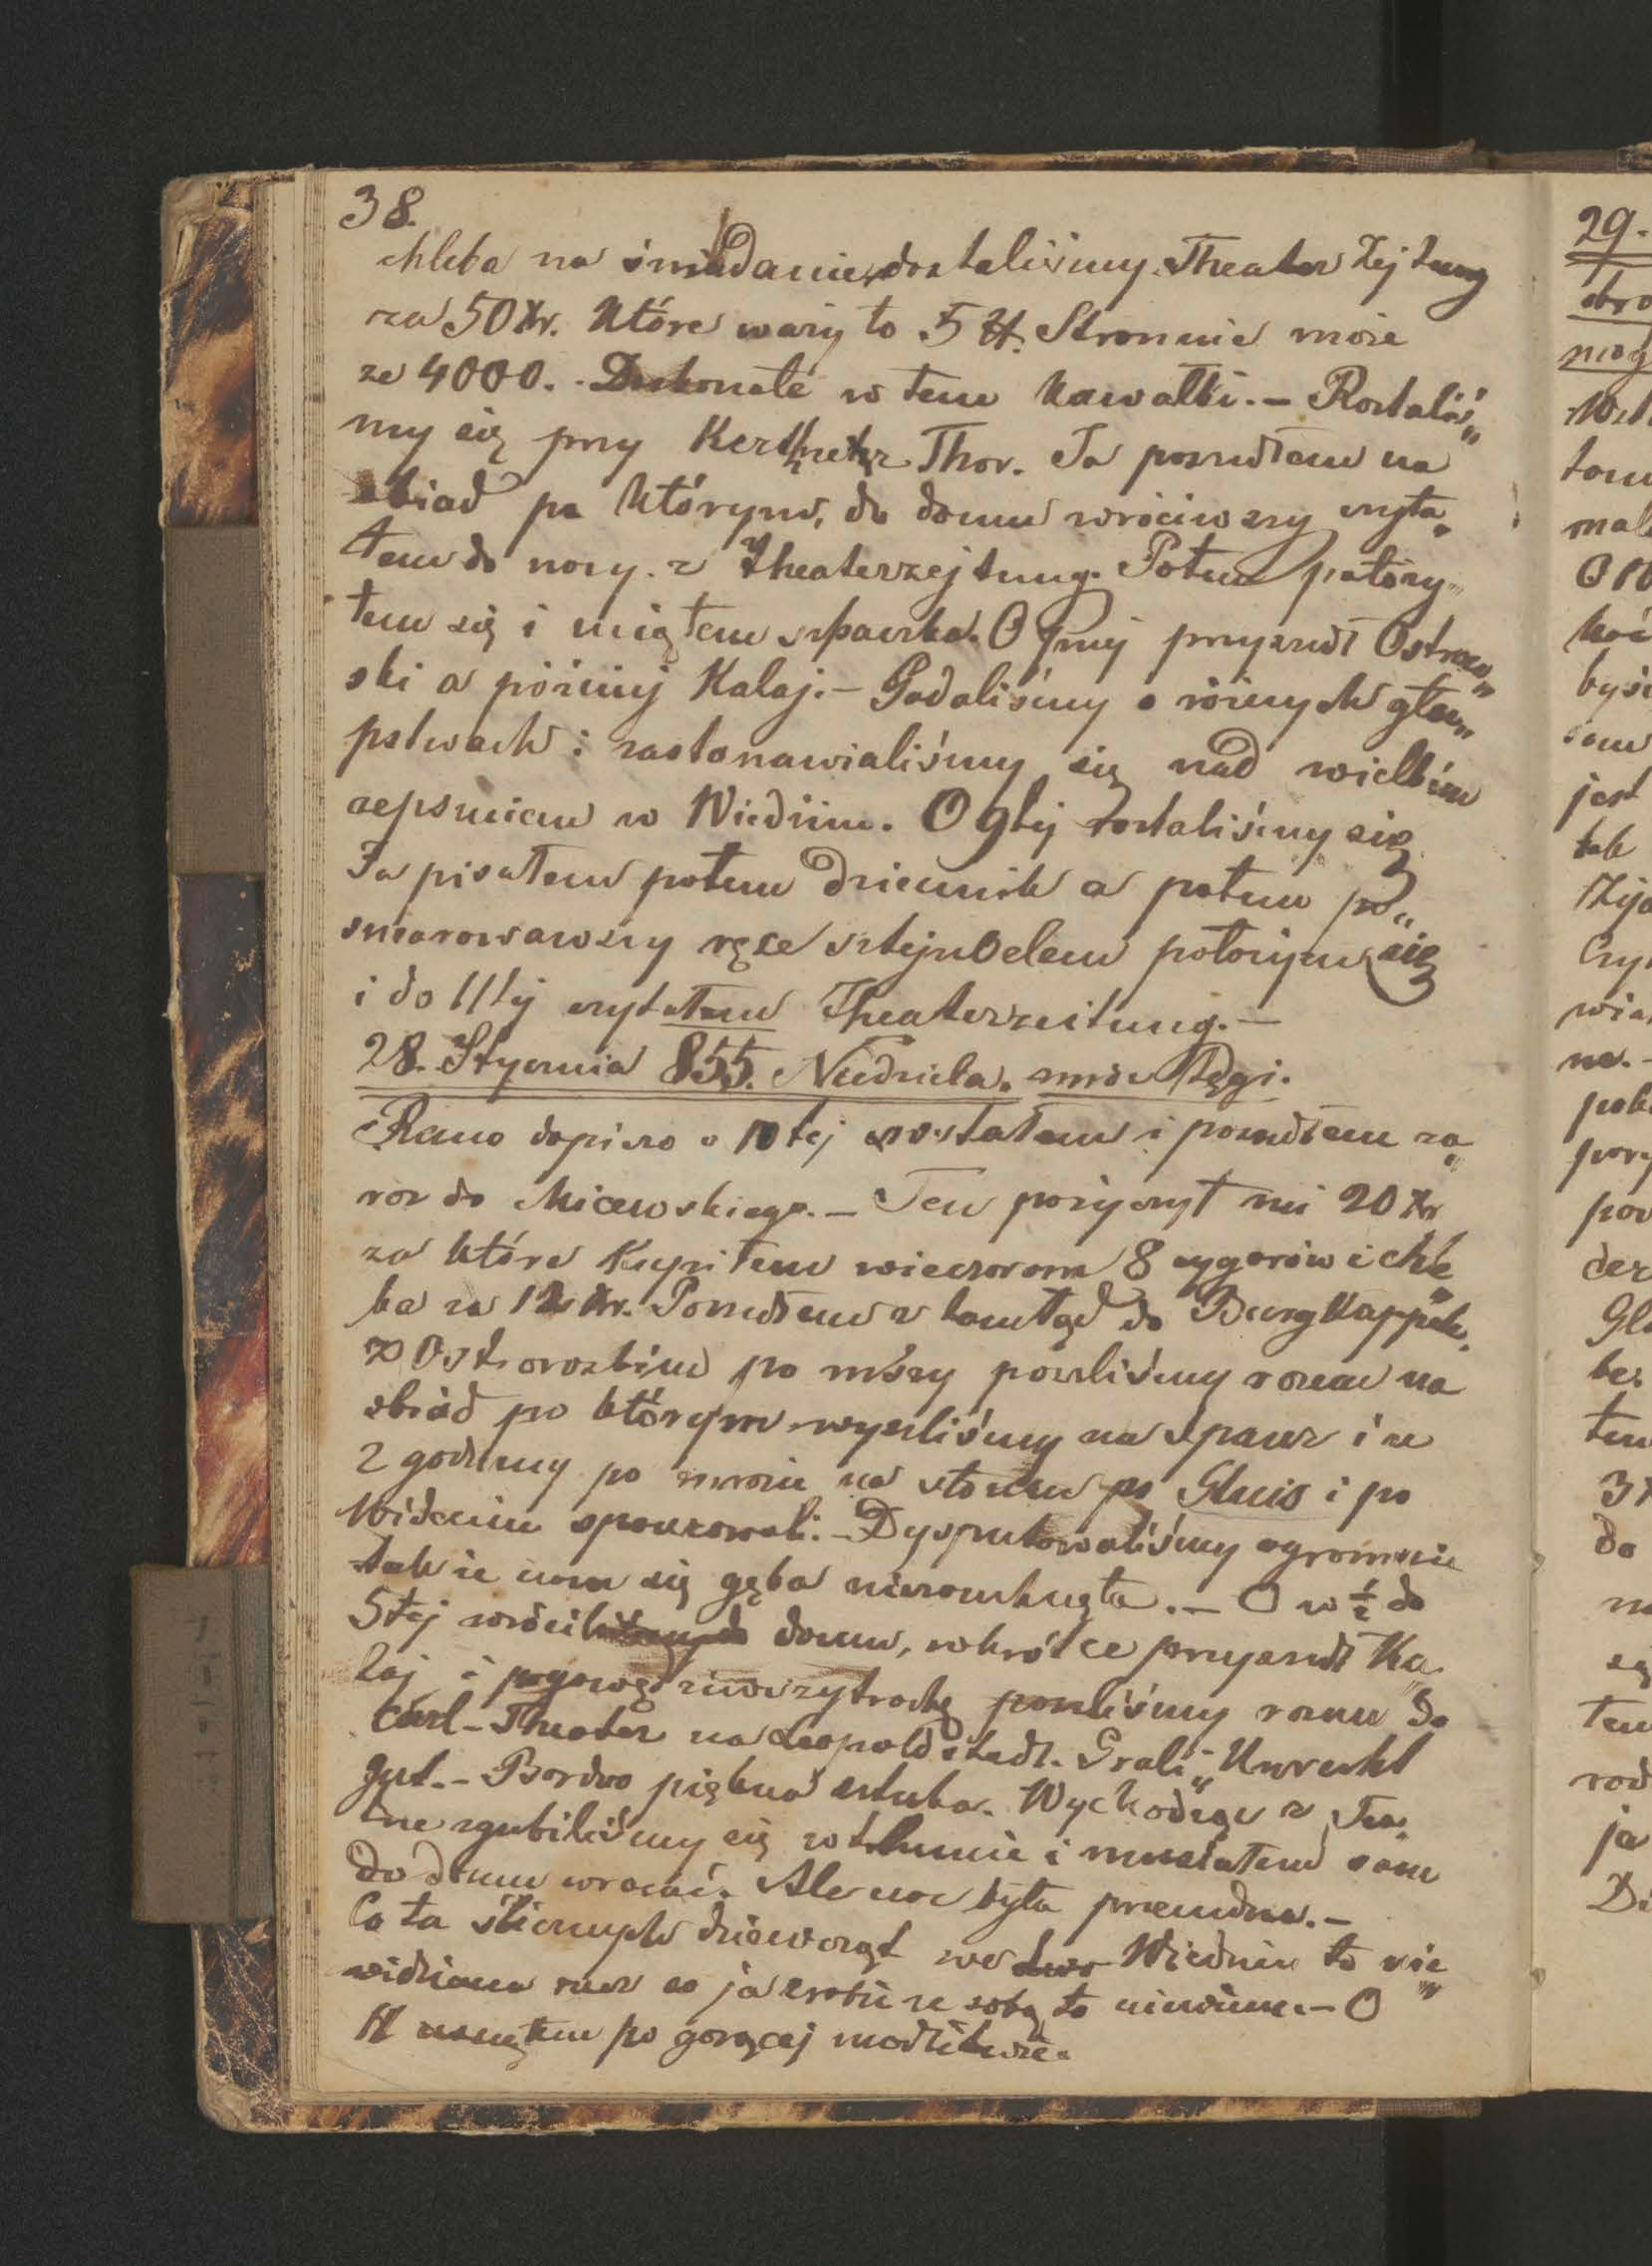 38.
chleba na śniadanie, dostaliśmy Theater Zejtung
za 50 Xr. które waży to 5 ℔. Stronnic może
ze 4000. Doskonałe w tem kawałki. – Rostaliś„
my się przy Kerthner Thor. Ja poszedłem na
obiad po którym, do domu wróciwszy czyta„
łem do nocy z Theaterzejtung. Potem położy„
łem się i ciąłem szpacka. O 7mej przyszedł Ostrow„
ski a później Kalaj. – Gadaliśmy o różnych głu„
pstwach i zastonawialiśmy się nad wielkim
zepsuciem w Wiedniu. O 9tej rostaliśmy się
Ja pisałem potem dziennik a potem po„
smarowawszy ręce sztejnOelem położyłem się
i do 11tej czytałem Theaterzeitung. –
28. Stycznia 855. Niedziela. mróz tęgi.
Rano dopiero o 10tej wstałem i poszedłem za„
raz do Micewskiego. – Ten pożyczył mi 20 Xr
za które kupiłem wieczorem 8 cygarów i chle„
ba za 12 Xr. Poszedłem z tamtąd do Burgkappele.
z Ostrowskim po mszy poszliśmy razem na
obiad po którym wyszliśmy na szpacer i ze
2 godziny po mrozie na słońcu po Glacis i po
Wideniu spacerowali. – Dysputowaliśmy ogromnie
tak że nam się gęba niezamknęła. – O w ½ do
5tej wrócili domu, wkrótce przyszedł Ka„
laj i pogawędziwszy trochę poszliśmy razem do
Carl-Theater na Leopoldstadt. Grali „Unrecht
Gut. – Bardzo piękna sztuka. Wychodząc z Tea„
tre zgubiliśmy się w tłumie i musiałem sam
do domu wracać. Ale noc była przecudna. –
Co ta ślicznych dziewcząt we Wiedniu to nie„
widziana rzecz co ja zrobię ze sobą to niewiem. – O
11 usnąłem po gorącej modlitwie.
29.